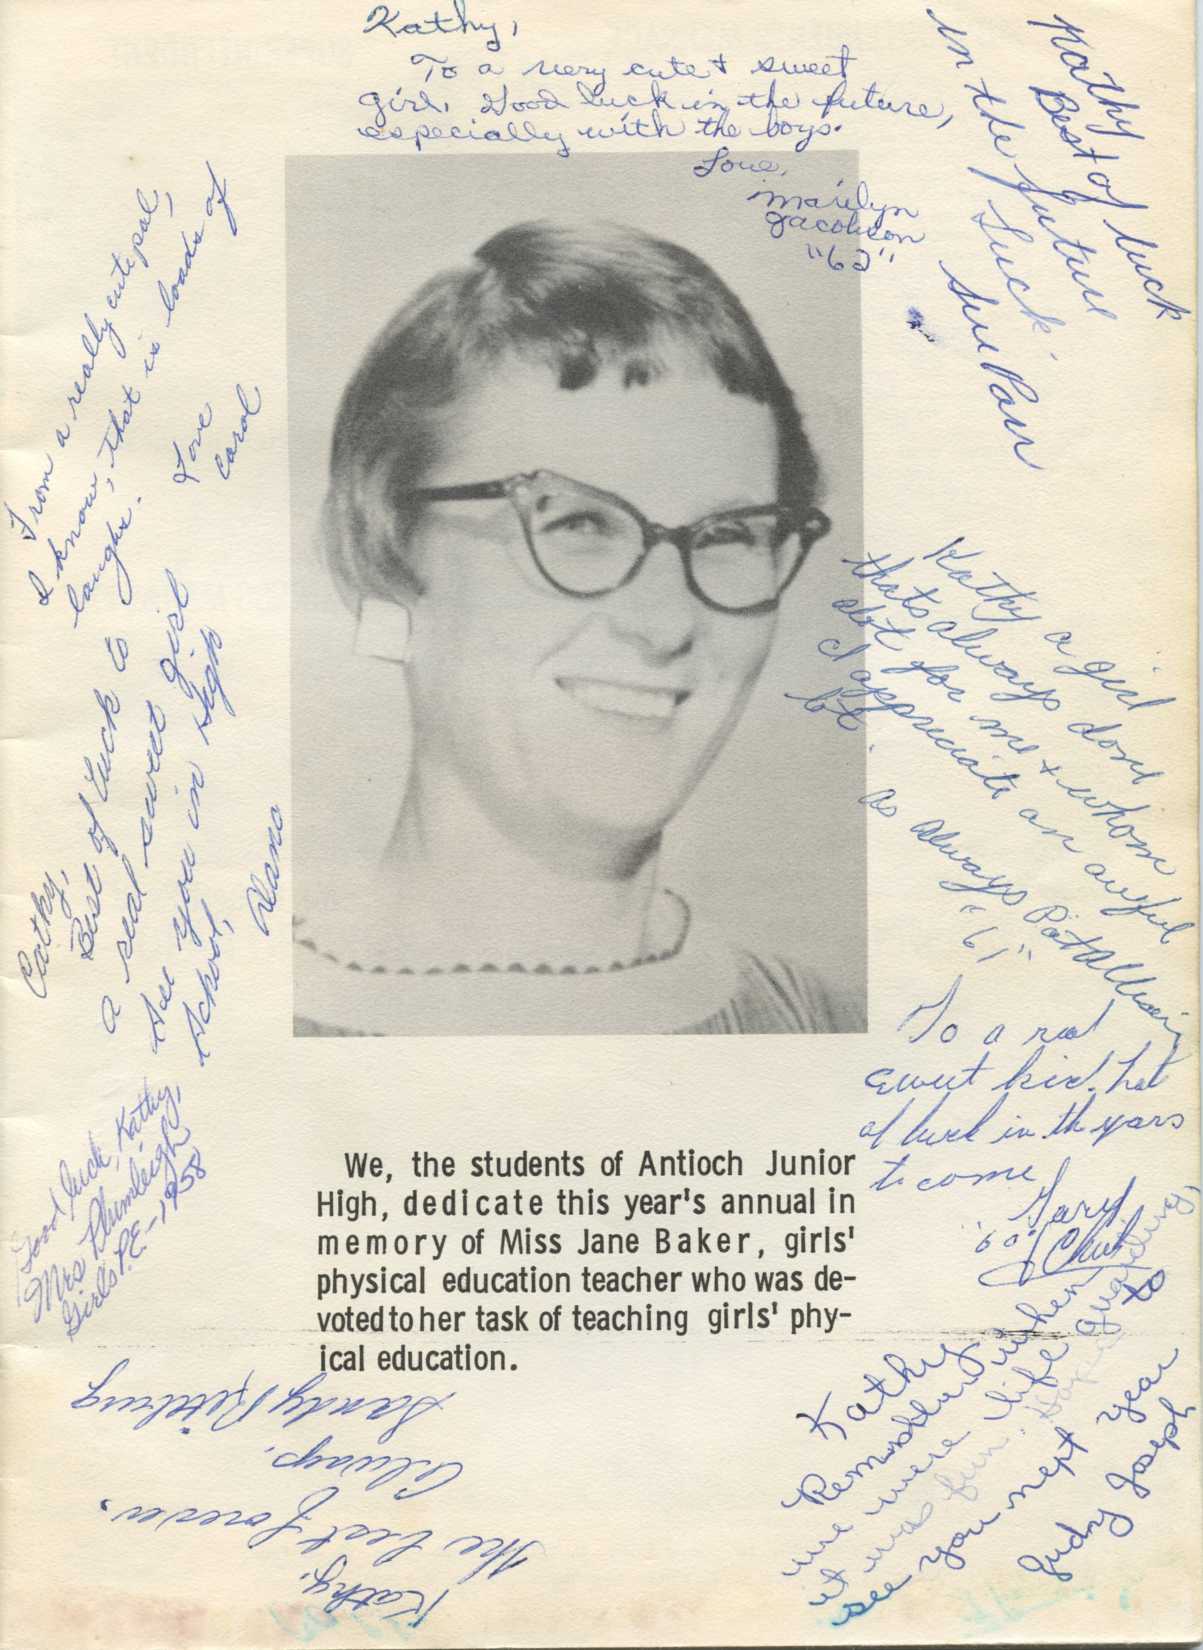 Kathy,
To a very cute & sweet
girl. Good luck in the future,
especially with the boys.
Love,
Marilyn
Jacobson
"62"
Kathy
Best of luck
in the future
Luck.
Sue Parr
From a really cute pal,
I know, that is loads of
laughs.
Love
Carol
Kathy a girl
thats always done
alot for me & whom
I appreciate an awful
lot.
as always Pat
"61"
Cathy,
Best of Luck to
a real sweet girl
See you in High
School,
Alana
To a real
sweet kid. Lot
of luck in the years
to come
Gary
"60"
Good luck, Kathy
Mrs Plumleigh,
Girls P.E. - 1958
We, the students of Antioch Junior
High, dedicate this year's annual in
memory of Miss Jane Baker, girls'
physical education teacher who was de-
voted to her task of teaching girls' phy-
ical education.
Kathy
Remember when
we were life guarding,
it was fun. to
see you next year
Judy Joseph
Kathy,
The best forever.
Always,
Sandy